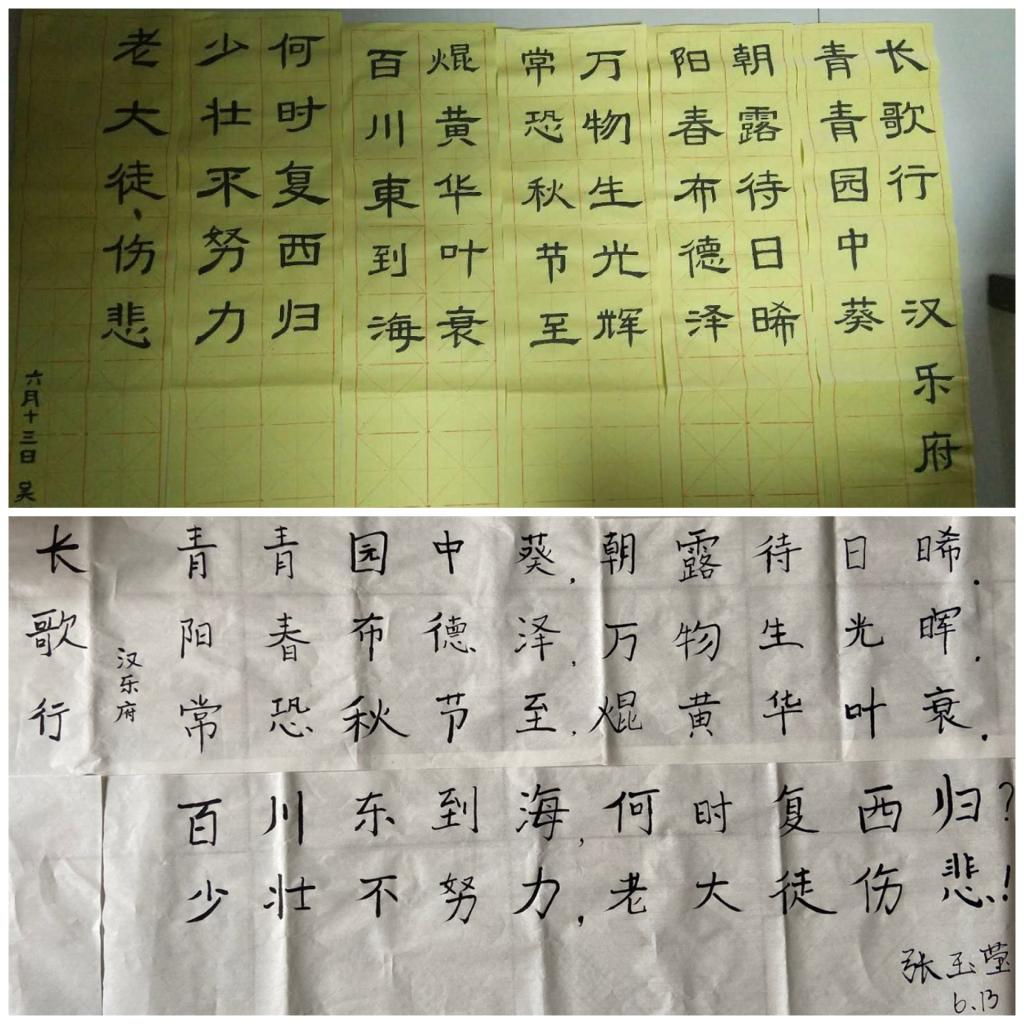 长歌行 汉乐府
青青园中葵
朝露待日晞
阳春布德泽
万物生光辉
常恐秋节至
焜黄华叶衰
百川東到海
何时复西归
少壮不努力
老大徒伤悲
六月十三日 吴
长歌行
汉乐府
青青园中葵,朝露待日晞.
阳春布德泽,万物生光晖.
常恐秋节至,焜黄华叶衰.
百川东到海,何时复西归?
少壮不努力,老大徒伤悲!
张玉莹
6.13